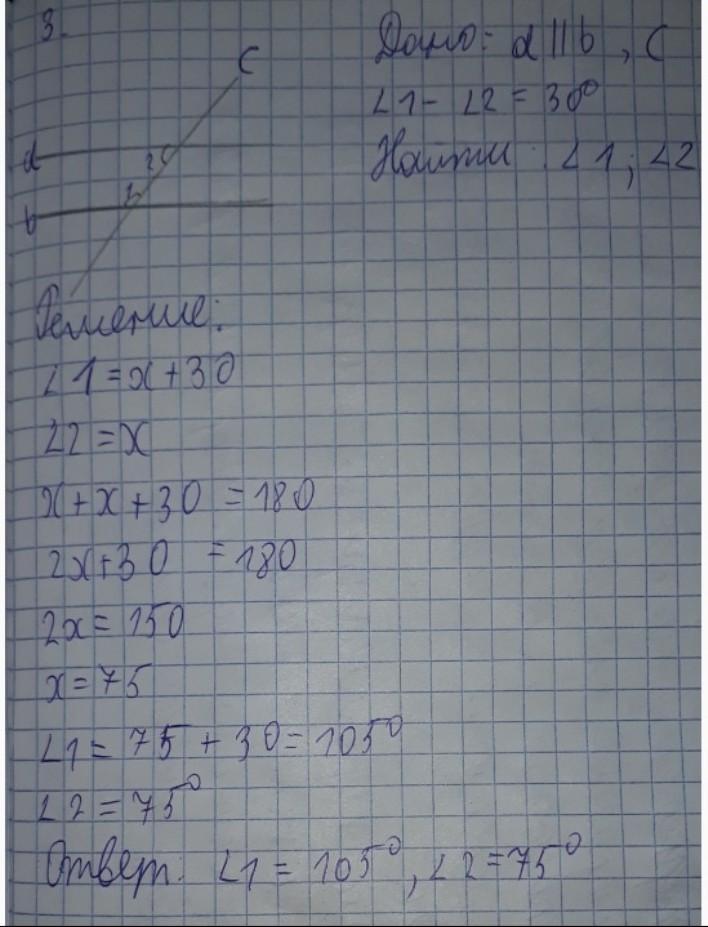 3.
Дано: d || b, C
∠1 - ∠2 = 30°
Найти: ∠1; ∠2
C
d
2
1
b
Решение:
∠1 = x + 30
∠2 = x
x + x + 30 = 180
2x + 30 = 180
2x = 150
x = 75
∠1 = 75 + 30 = 105°
∠2 = 75°
Ответ: ∠1 = 105°, ∠2 = 75°